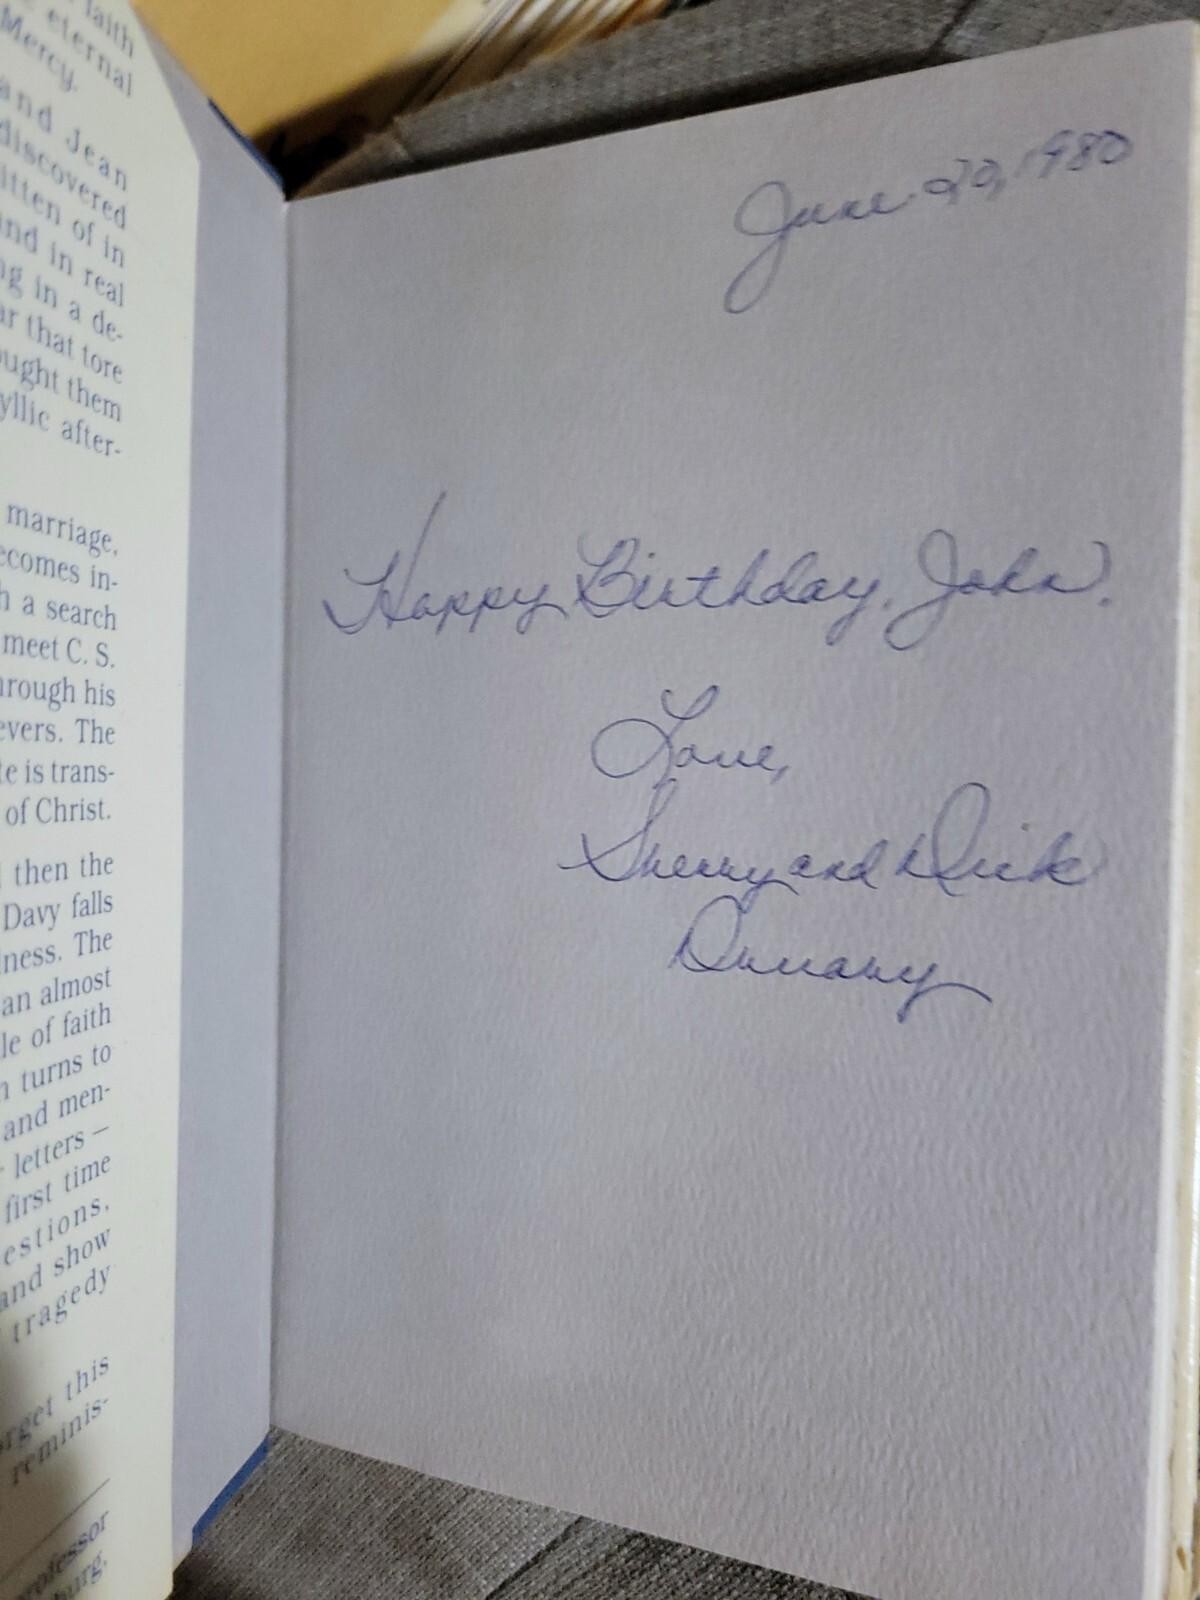 faith
eternal
Mercy.
and Jean
discovered
itten of in
and in real
ng in a de-
ar that tore
ought them
yllic after-
marriage,
ecomes in-
h a search
meet C. S.
hrough his
evers. The
te is trans-
of Christ.
then the
Davy falls
lness. The
an almost
le of faith
n turns to
and men-
letters –
first time
estions,
and show
tragedy
rget this
reminis-
rofessor
burg,
June 20, 1980
Happy Birthday, John.
Love,
Sherry and Dick